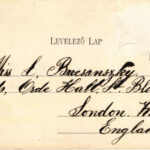 Levelező Lap
Miss A. Bucsanszky
Orde Hall St. Bl
London W.
England